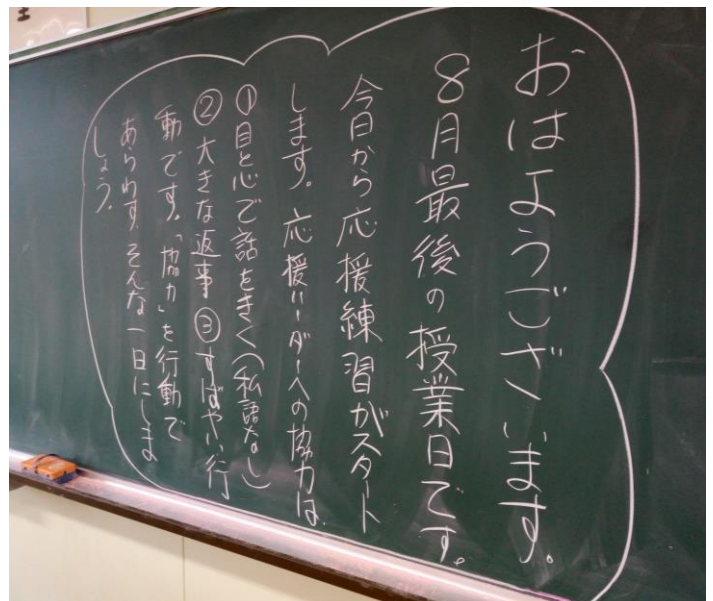 おはようございます。
8月最後の授業日です。
今日から応援練習がスタート
します。応援リーダーへの協力は
①目と心で話をきく(私語なし)
②大きな返事 ③すばやい行
動です。「協力」を行動で
あらわす、そんな一日にしま
しょう。